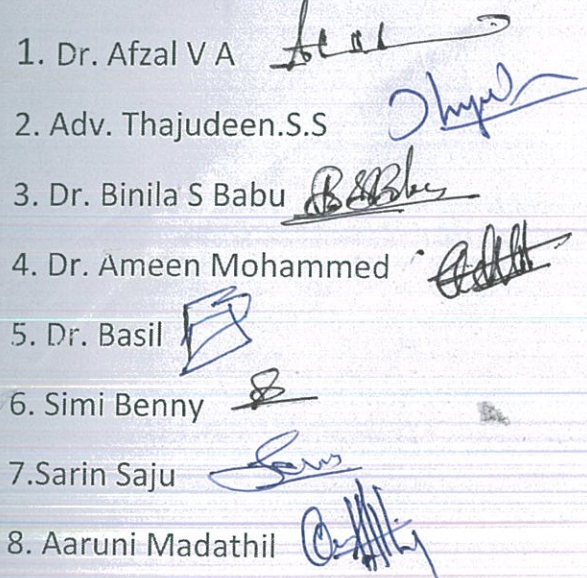 1. Dr. Afzal V A
2. Adv. Thajudeen.S.S
3. Dr. Binila S Babu
4. Dr. Ameen Mohammed
5. Dr. Basil
6. Simi Benny
7.Sarin Saju
8. Aaruni Madathil